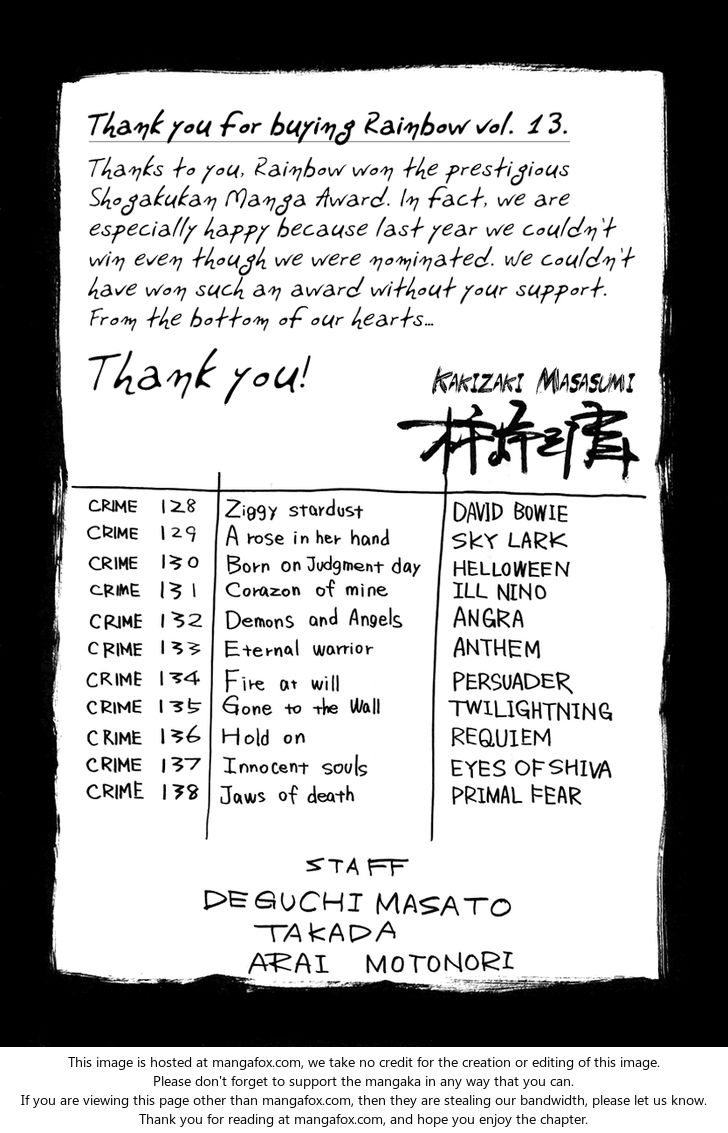 Thank you for buying Rainbow vol. 13.
Thanks to you, Rainbow won the prestigious
Shogakukan Manga Award. In fact, we are
especially happy because last year we couldn't
win even though we were nominated. We couldn't
have won such an award without your support.
From the bottom of our hearts...
Thank you!
KAKIZAKI MASASUMI
柿崎正澄
CRIME 128 Ziggy stardust DAVID BOWIE
CRIME 129 A rose in her hand SKY LARK
CRIME 130 Born on Judgment day HELLOWEEN
CRIME 131 Corazon of mine ILL NINO
CRIME 132 Demons and Angels ANGRA
CRIME 133 Eternal warrior ANTHEM
CRIME 134 Fire at will PERSUADER
CRIME 135 Gone to the Wall TWILIGHTNING
CRIME 136 Hold on REQUIEM
CRIME 137 Innocent souls EYES OF SHIVA
CRIME 138 Jaws of death PRIMAL FEAR
STAFF
DEGUCHI MASATO
TAKADA
ARAI MOTONORI
This image is hosted at mangafox.com, we take no credit for the creation or editing of this image.
Please don't forget to support the mangaka in any way that you can.
If you are viewing this page other than mangafox.com, then they are stealing our bandwidth, please let us know.
Thank you for reading at mangafox.com, and hope you enjoy the chapter.